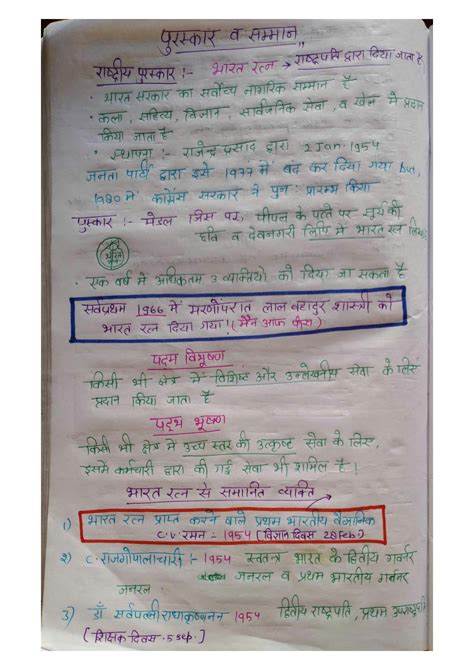 पुरस्कार व सम्मान
राष्ट्रीय पुरस्कार :- भारत रत्न → राष्ट्रपति द्वारा दिया जाता है
• भारत सरकार का सर्वोच्य नागरिक सम्मान है
• कला, सहित्य, विज्ञान, सार्वजनिक सेवा, व खेल में प्रदान
किया जाता है
• स्थापना :- राजेन्द्र प्रसाद द्वारा 2 Jan 1954
जनता पार्टी द्वारा इसे 1977 में बंद कर दिया गया but,
1980 में कांग्रेस सरकार ने पुनः प्रारम्भ किया
पुरस्कार :- मेडल जिस पर, पीपल के पत्ते पर सूर्य की
छवि व देवनागरी लिपि में भारत रत्न
भारत
• एक वर्ष में अधिकतम 3 व्यक्तियो को दिया जा सकता है
सर्वप्रथम 1966 में मरणोपरांत लाल बहादुर शास्त्री को
भारत रत्न दिया गया! (मैन आफ पीस)
पद्म विभूषण
किसी भी क्षेत्र में विशिष्ट और उल्लेखनीय सेवा के लिए
प्रदान किया जाता है
पद्म भूषण
किसी भी क्षेत्र में उच्च स्तर की उत्कृष्ट सेवा के लिए,
इसमे कर्मचारी द्वारा की गई सेवा भी शामिल है!
भारत रत्न से समानित व्यक्ति
1) भारत रत्न प्राप्त करने वाले प्रथम भारतीय वैज्ञानिक
C.V. रमन :- 1954 (विज्ञान दिवस 28 Feb)
2) C. राजगोपालाचारी :- 1954 स्वतन्त्र भारत के द्वितीय गवर्नर
जनरल व प्रथम भारतीय गवर्नर
जनरल
3) डॉ सर्वपल्ली राधाकृष्णनन 1954 द्वितीय राष्ट्रपति, प्रथम उपराष्ट्रपति
[शिक्षक दिवस - 5 sep.]